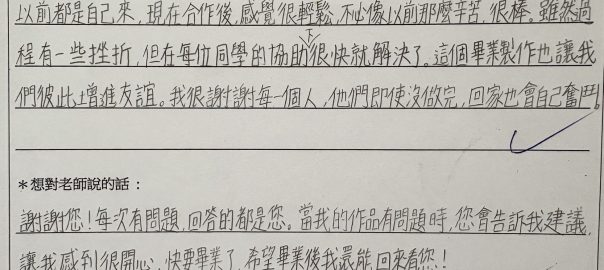 以前都是自己來，現在合作後，感覺很輕鬆，不必像以前那麼辛苦，很棒。雖然過
程有一些挫折，但在每位同學的協助下很快就解決了。這個畢業製作也讓我
們彼此增進友誼。我很謝謝每一個人，他們即使沒做完，回家也會自己奮鬥。
＊想對老師說的話：
謝謝您！每次有問題，回答的都是您。當我的作品有問題時，您會告訴我建議，
讓我感到很開心，快要畢業了，希望畢業後我還能回來看您！